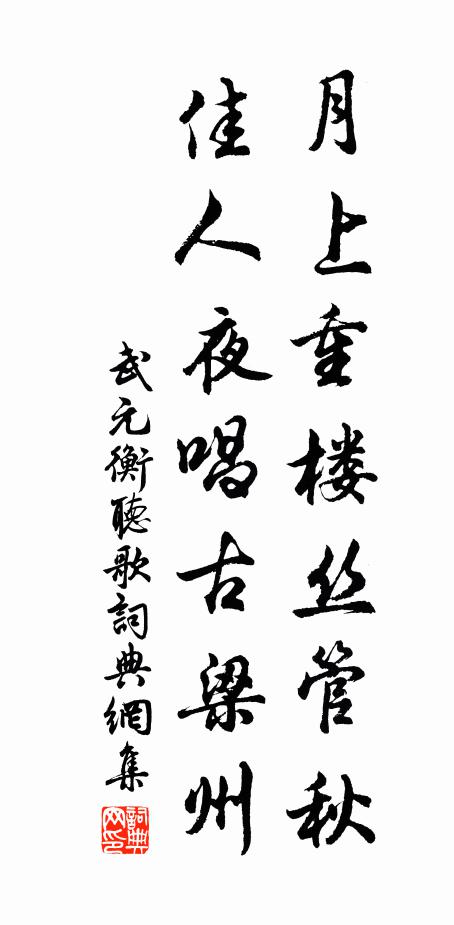 月上重楼丝管秋
佳人夜唱古梁州
武元衡聽歌詞典網集
詞典网印